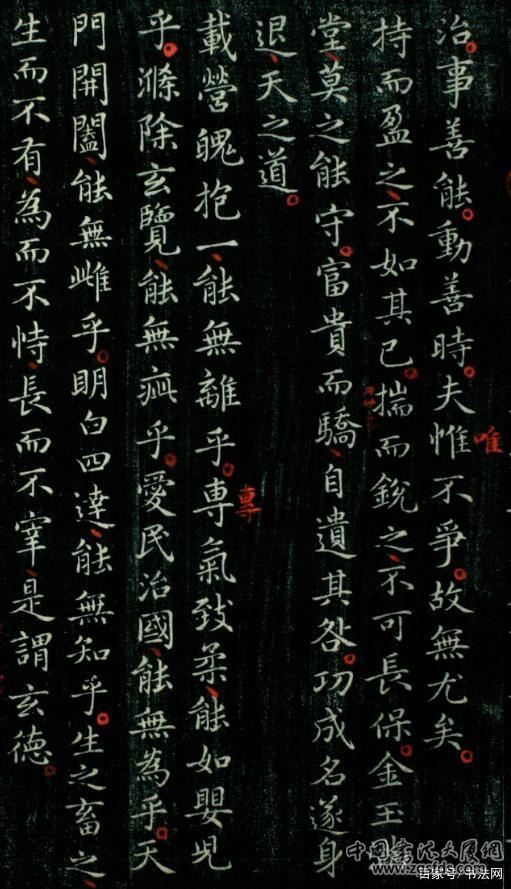 治事善能動善時夫惟不爭故無尤矣
唯
持而盈之不如其已揣而銳之不可長保金玉
堂莫之能守富貴而驕自遺其咎功成名遂身
退天之道
載營魄抱一能無離乎専氣致柔能如嬰兒
專
乎滌除玄覽能無疵乎愛民治國能無為乎天
門開闔能無雌乎明白四達能無知乎生之畜之
生而不有為而不恃長而不宰是謂玄德
中国书法大厦网
www.zgsfds.com
百家号/书法网